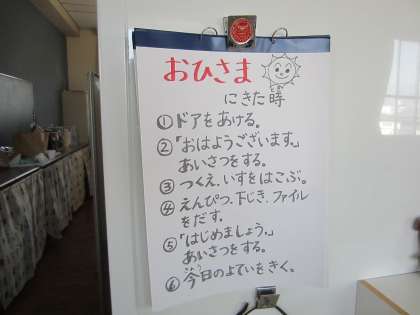 おひさま
にきた時
①ドアをあける。
②「おはようございます。」
あいさつをする。
③つくえ、いすをはこぶ。
④えんぴつ、下じき、ファイル
をだす。
⑤「はじめましょう。」
あいさつをする。
⑥今日のよていをきく。